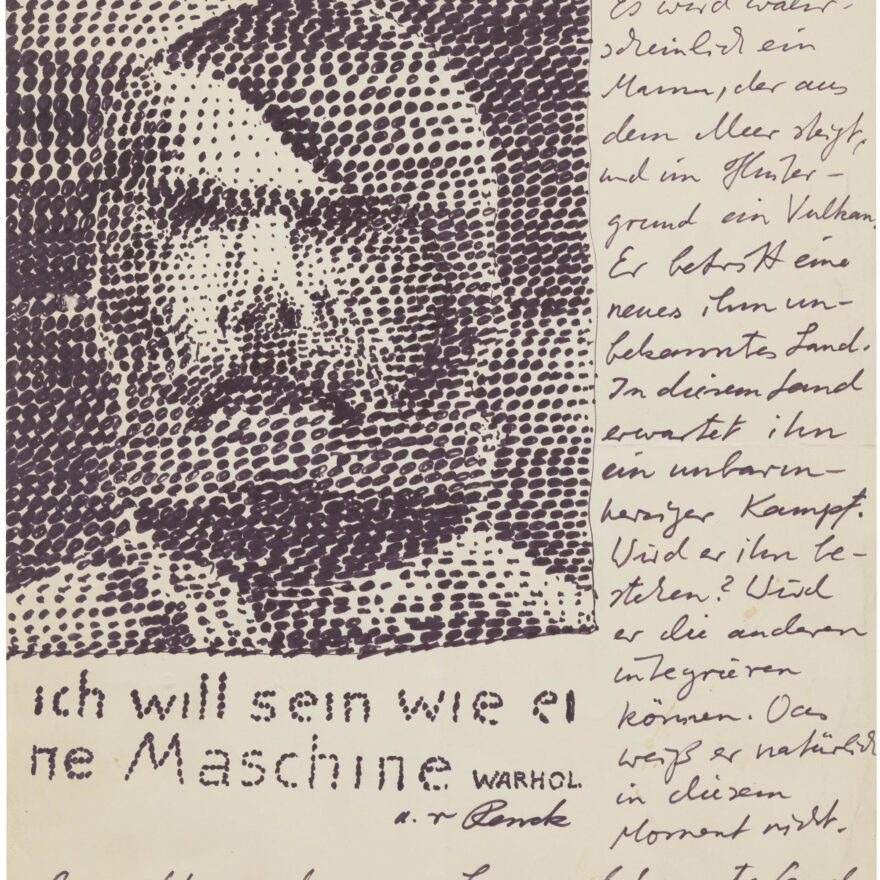 Es wird wahr-
scheinlich ein
Mann, der aus
dem Meer steigt,
und im Hinter-
grund ein Vulkan.
Er betritt eine
neues ihm un-
bekanntes Land.
In diesem Land
erwartet ihn
ein unbarm-
herziger Kampf.
Wird er ihn be-
stehen? Wird
er die anderen
integrieren
können. Das
weiß er natürlich
in diesem
Moment nicht.
ich will sein wie ei
ne Maschine WARHOL.
a. r. Penck